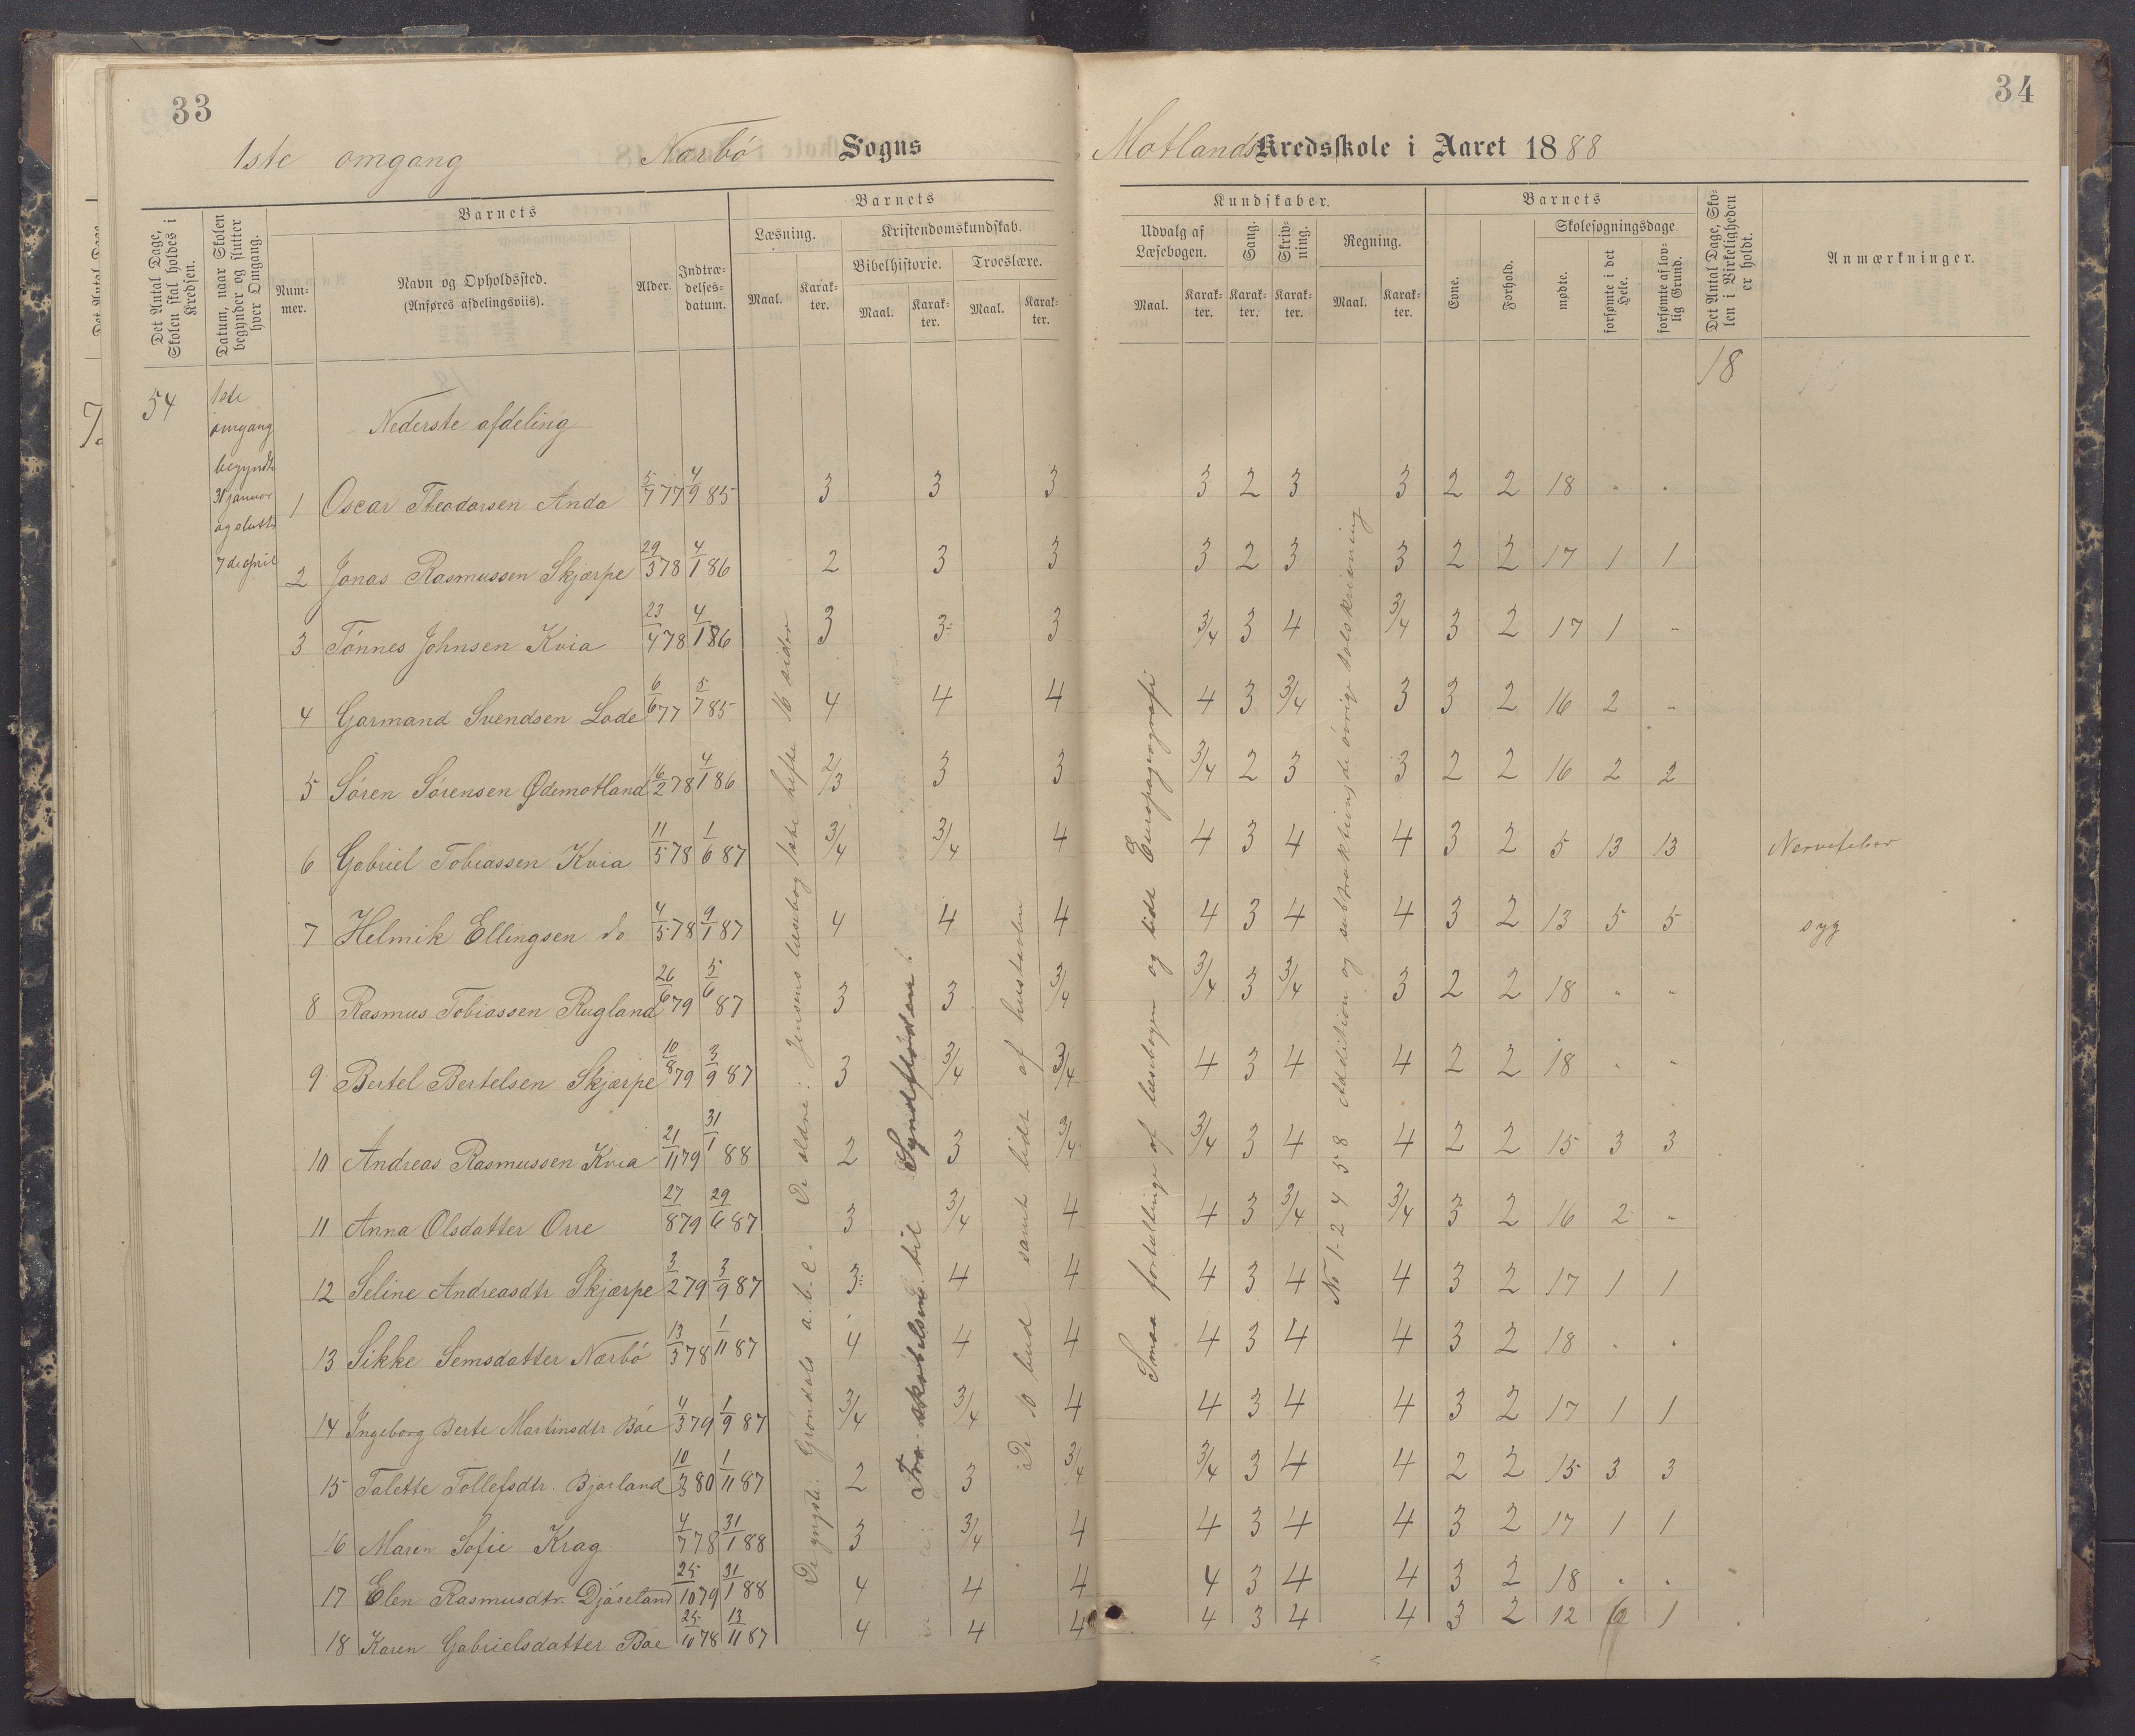 33
34
1ste omgang Nærbø Sogns Motlands Kredsskole i Aaret 1888
Det Antal Dage, Skolen skal holdes i Kredsen.
Datum, naar Skolen begynder og slutter hver Omgang.
Barnets
Num-mer.
Navn og Opholdssted.
(Anføres afdelingsviis).
Alder.
Indtræ-delses-datum.
Barnets
Læsning.
Kristendomskundskab.
Bibelhistorie.
Troeslære.
Maal.
Karak-ter.
Maal.
Karak-ter.
Maal.
Karak-ter.
Kundskaber.
Udvalg af Læsebogen.
Sang.
Skriv-ning.
Regning.
Maal.
Karak-ter.
Karak-ter.
Karak-ter.
Maal.
Karak-ter.
Barnets
Evne.
Forhold.
Skolesøgningsdage.
mødte.
forsømte i det Hele.
forsømte af lov-lig Grund.
Det Antal Dage, Sko-len i Virkeligheden er holdt.
Anmærkninger.
54
1ste
omgang
begyndte
31 januar
og slutte
7de april
18
Nederste afdeling
1 Oscar Theodorsen Anda 5/7 77 4/9 85 3 3 3 3 2 3 3 2 2 18 . .
2 Jonas Rasmussen Skjærpe 29/3 78 4/1 86 2 3 3 3 2 3 3 2 2 17 1 1
3 Tønnes Johnsen Kvia 23/4 78 4/1 86 3 3 3 3/4 3 4 3/4 3 2 17 1 -
4 Garmand Svendsen Lode 6/6 77 5/7 85 4 4 4 4 3 3/4 3 3 2 16 2 -
5 Søren Sørensen Ødemotland 16/2 78 4/1 86 2/3 3 3 3/4 2 3 3 2 2 16 2 2
6 Gabriel Tobiassen Kvia 11/5 78 1/6 87 3/4 3/4 4 4 3 4 4 3 2 5 13 13 Nervefeber
7 Helmik Ellingsen do 4/5 78 9/1 87 4 4 4 4 3 4 4 3 2 13 5 5 syg
8 Rasmus Tobiassen Rugland 26/6 79 5/6 87 3 3 3/4 3/4 3 3/4 3 2 2 18 - -
9 Bertel Bertelsen Skjærpe 10/8 79 3/9 87 3 3/4 3/4 4 3 4 4 2 2 18 . -
10 Andreas Rasmussen Kvia 21/11 79 31/1 88 2 3 3/4 3/4 3 4 4 2 2 15 3 3
11 Anna Olsdatter Orre 27/8 79 29/6 87 3 3/4 4 4 3 3/4 3/4 3 2 16 2 -
12 Seline Andreasdtr Skjærpe 3/2 79 3/9 87 3 4 4 4 3 4 4 3 2 17 1 1
13 Sikke Semsdatter Nærbø 13/3 78 1/11 87 4 4 4 4 3 4 4 3 2 18 . .
14 Ingeborg Berte Martinsdtr Bøe 4/3 79 1/9 87 3/4 3/4 4 4 3 4 4 3 2 17 1 1
15 Talette Tollefsdtr. Bjorland 10/3 80 1/11 87 2 3 3/4 3/4 3 4 4 2 2 15 3 3
16 Maren Sofie Krag 4/7 78 31/1 88 3 3/4 4 4 3 4 4 3 2 17 1 1
17 Elen Rasmusdtr. Djøseland 25/10 79 31/1 88 4 4 4 4 3 4 4 3 2 18 . .
18 Karen Gabrielsdatter Bøe 25/10 78 13/11 87 4 4 4 4 3 4 4 3 2 12 6 1
De yngste: Grøndals a.b.c. De ældre: Jensens læsebog 1ste hefte 16 sider
Fra skabelsen til Syndfloden
De 10 bud samt lidt af hustavlen
Smaa fortellinge af læsebogen og lidt Europageografi
No 1-2 4 5 8 Addition og subtraktion, de øvrige talskrivning